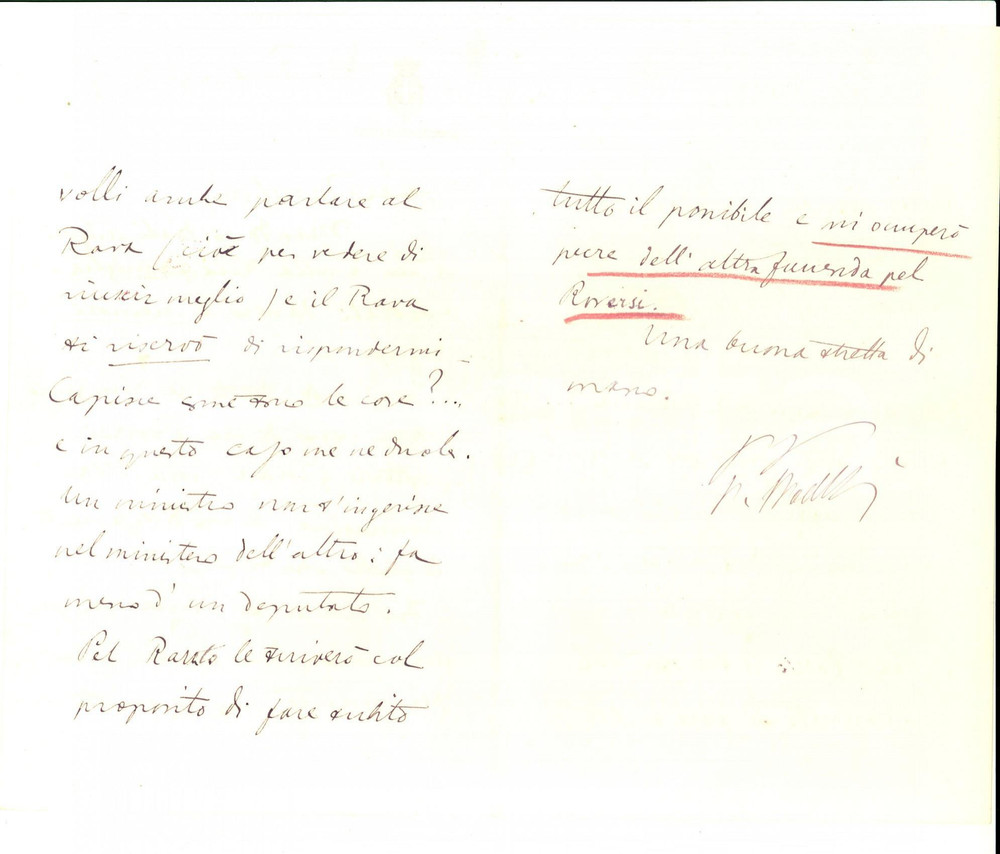 volli anche parlare al
Rava (cioè per vedere di
riuscir meglio) e il Rava
si riservò di rispondermi.
Capisce come sono le cose?...
e in questo caso me ne duole.
Un ministro non s'ingerisce
nel ministero dell'altro: fa
meno d'un deputato.
Pel Rasato le scriverò col
proposito di fare subito
tutto il possibile e mi occuperò
pure dell'altra faccenda pel
Roversi.
Una buona stretta di
mano.